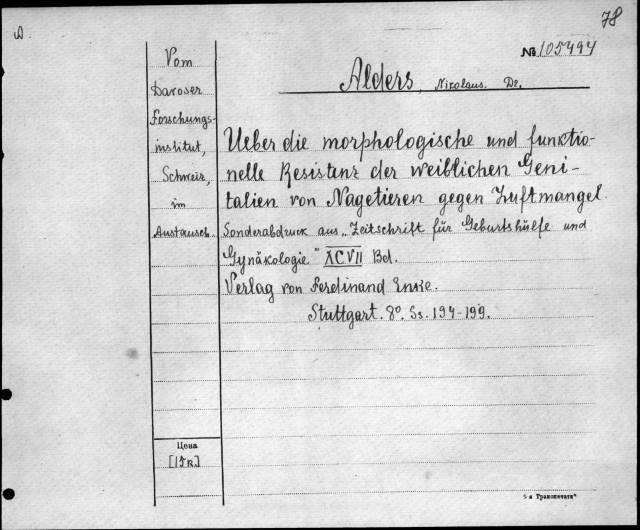 A.
78
№ 105494
Alders, Nikolaus. Dr.
Vom
Davoser
Forschungs-
institut,
Schweiz,
im
Austausch.
Ueber die morphologische und funktio-
nelle Resistenz der weiblichen Geni-
talien von Nagetieren gegen Luftmangel.
Sonderabdruck aus „Zeitschrift für Geburtshülfe und
Gynäkologie" XCVII Bd.
Verlag von Ferdinand Enke.
Stuttgart. 8°. Ss. 194-199.
Цена
5-я Транспечать"